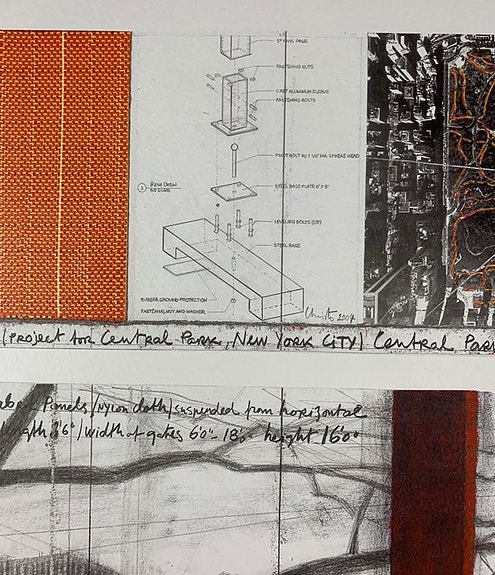 5" VINYL PANEL
FASTENING NUTS
CAST ALUMINUM SLEEVE
FASTENING BOLTS
PIVOT BOLT W/ 1 1/2" DIA. SPHERE HEAD
Base Detail
NO SCALE
STEEL BASE PLATE 8" x 8"
LEVELING BOLTS (5/8")
STEEL BASE
RUBBER GROUND PROTECTION
FASTENING NUT AND WASHER
Christo 2004
(PROJECT for Central Park, New York City) Central Park
Panels/Nylon cloth/suspended from horizontal
width of gates 6'0"- 18'0" height 16'0"